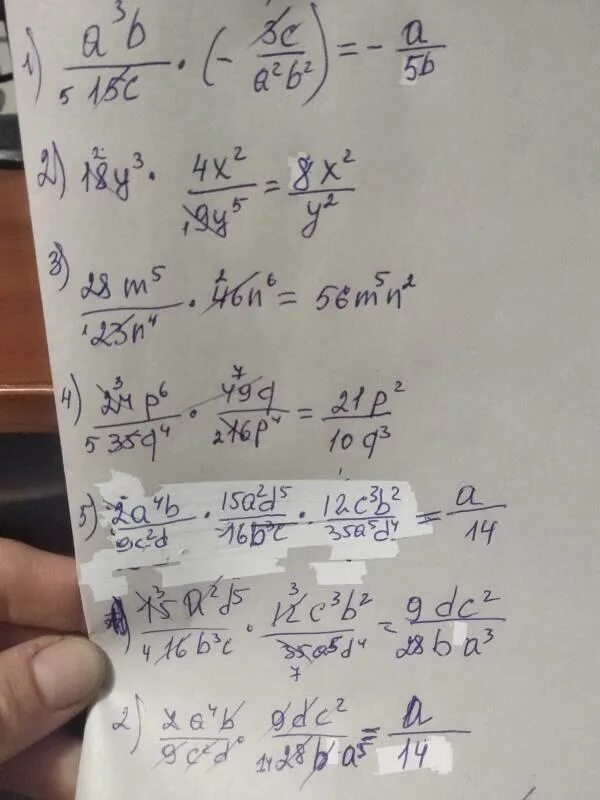 1) a³b / 5 15c · (- 3c / a²b²) = - a / 5b
2) 18² y³ · 4x² / 1 9y⁵ = 8x² / y²
3) 28m⁵ / 1 23n⁴ · 2 46n⁶ = 56m⁵n²
4) 24³ p⁶ / 5 35q⁴ · 7 49q / 2 16p⁴ = 21p² / 10q³
5) 2a⁴b / 9c²d · 15a²d⁵ / 16b³c · 12c³b² / 35a⁵d⁴ = a / 14
1) 15³ a²d⁵ / 4 16b³c · 12³ c³b² / 35a⁵d⁴ 7 = 9dc² / 28ba³
2) 2a⁴b / 9c²d · 9dc² / 14 28ba³ = a / 14